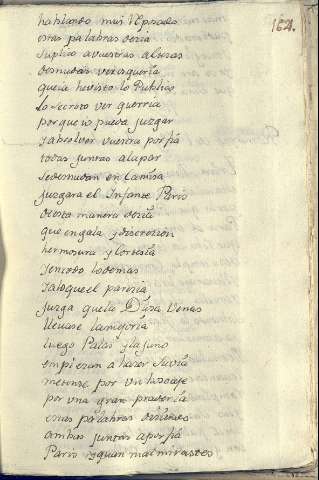 164.
hablando muy
estas palabras dezia
suplico a vuestras altezas
desnudas veros queria
que he visto lo Publico
lo secreto ver querria
porque yo pueda juzgar
y absolver vuestra porfia
todas juntas a la par
se desnudan en camisa
juzgara el Infante Paris
desta manera dezia
que en gala y discrecion
hermosura y cortesia
y en todo lo demas
y a lo que el parecia
juzga que la Diosa Venus
llevase la mejoria
luego Palas y la Juno
empiezan a hazer su via
metense por un boscaje
por una gran praderia
estas palabras diziendo
ambas juntas a porfia
Paris y quan mal miraste